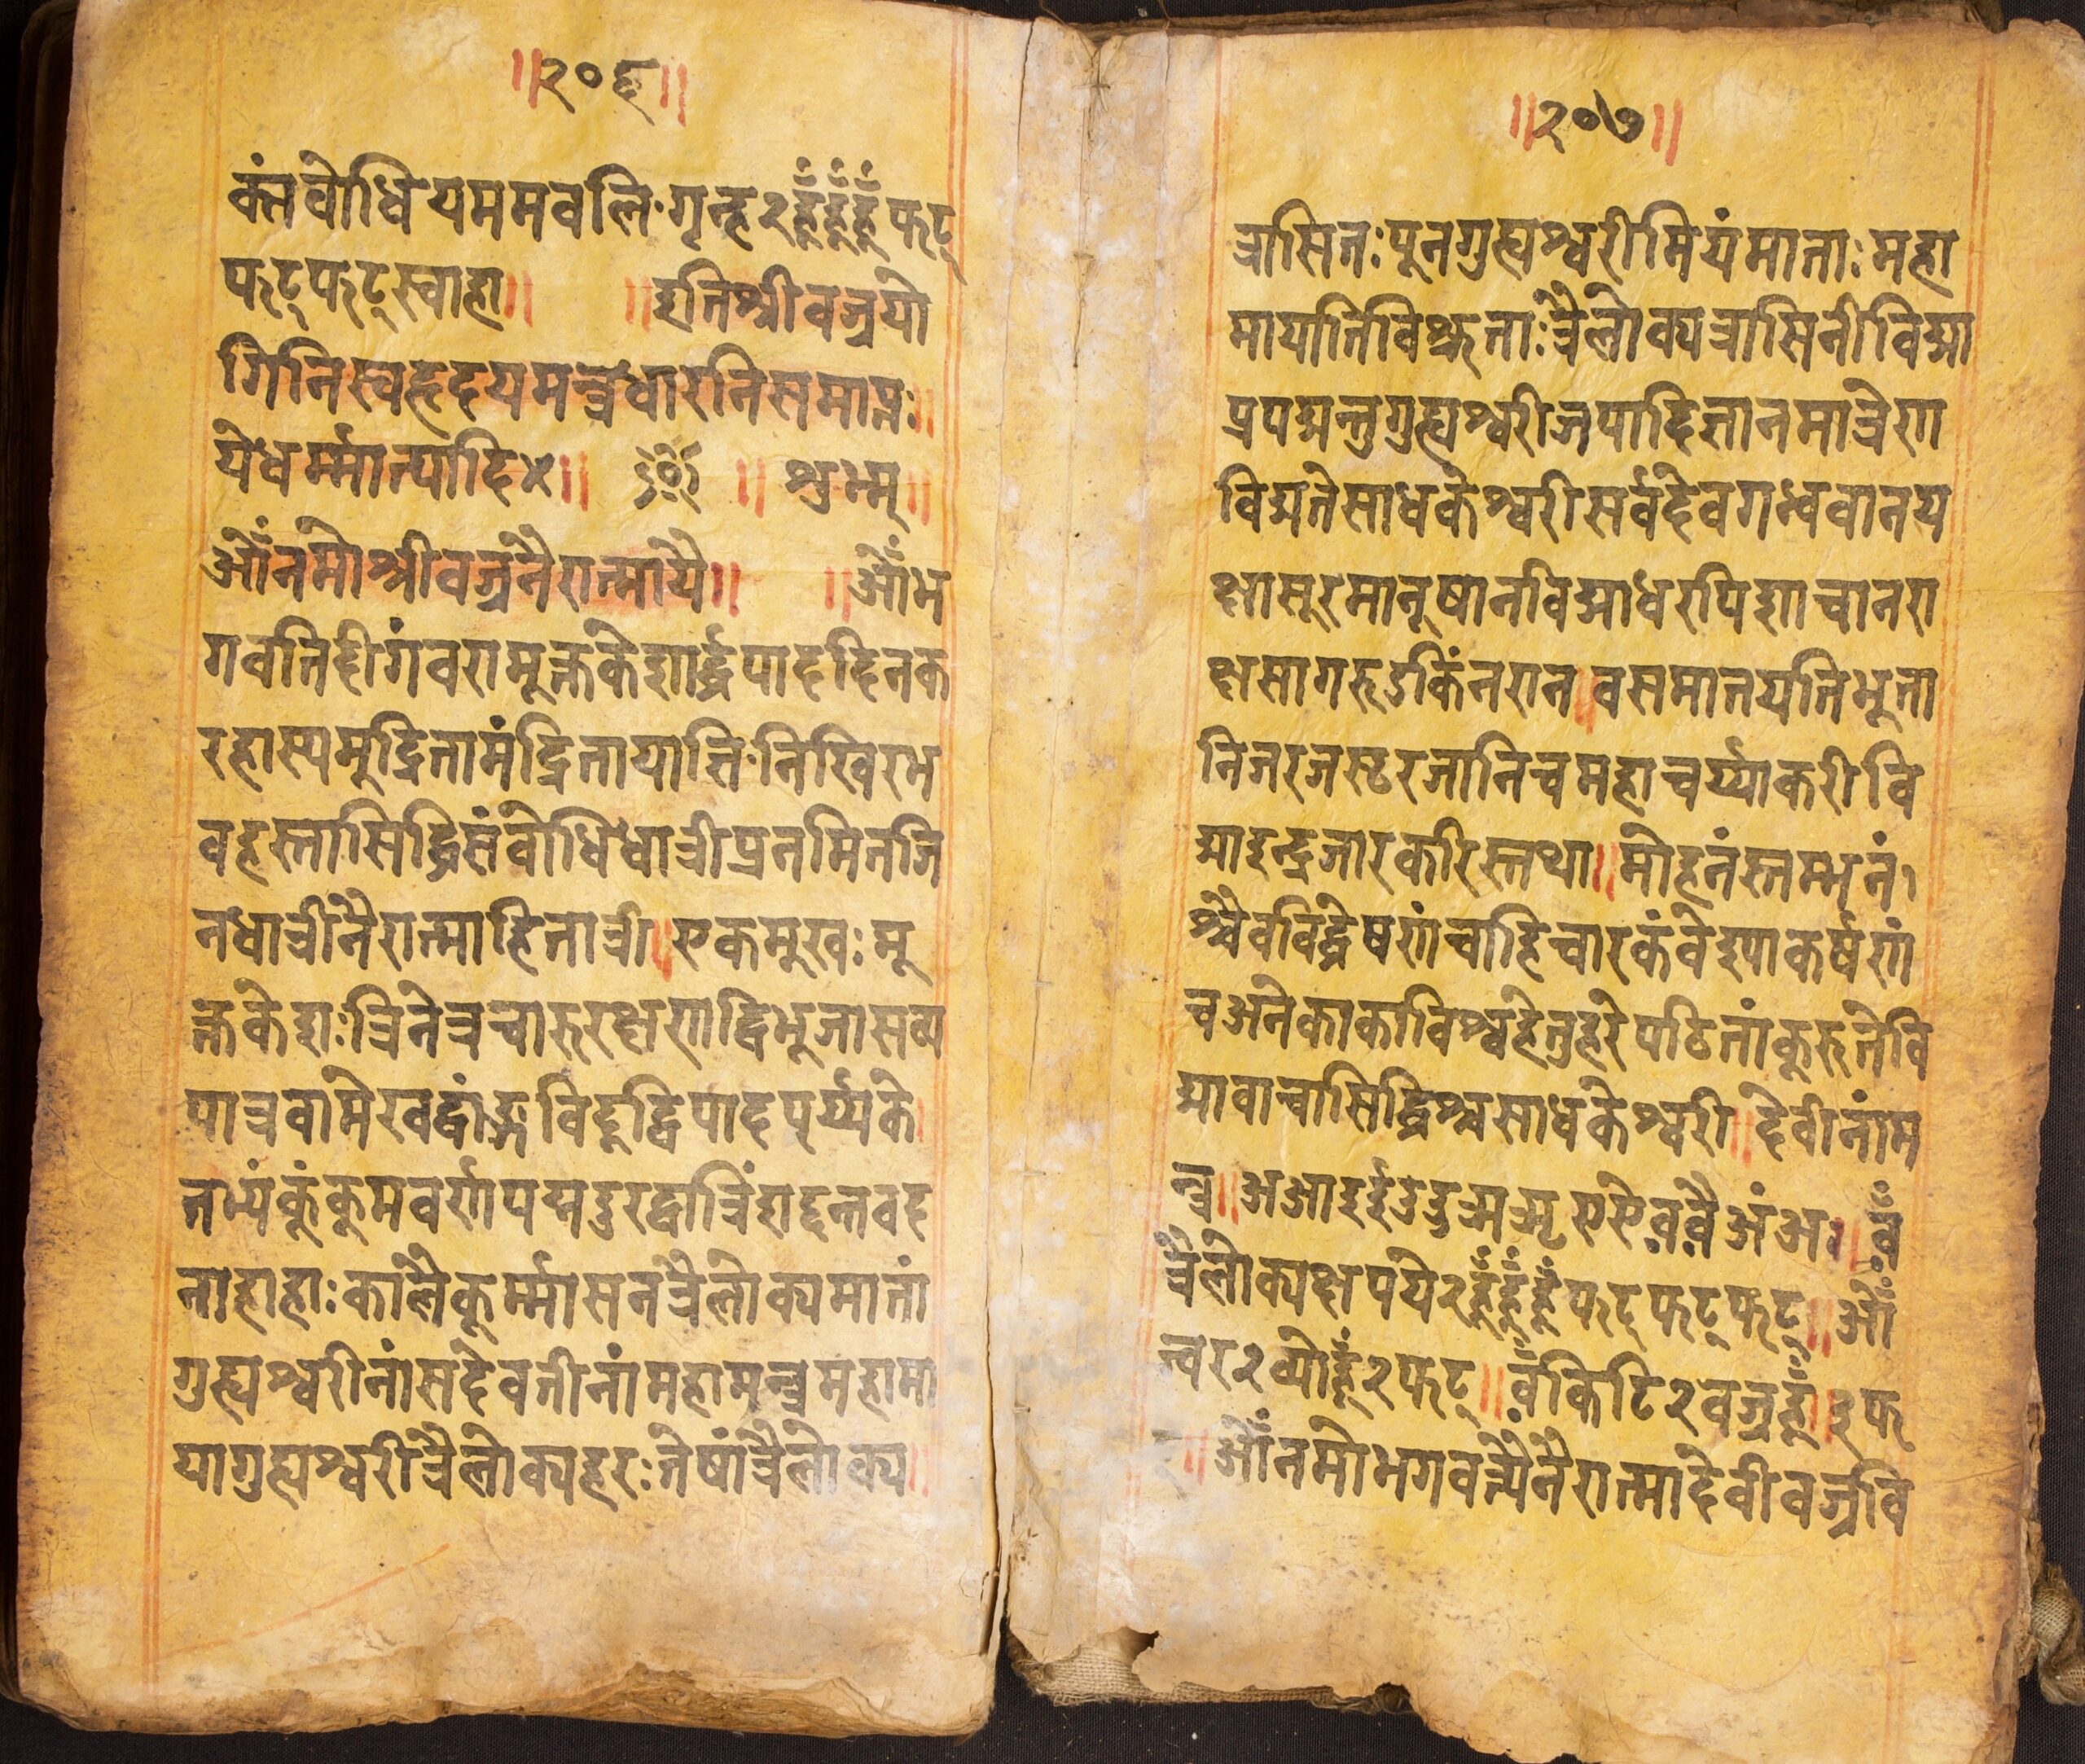 ॥२०६॥
क्तंवोधियममवलिंगृन्ह२हूँहूँहूँफट्
फट्फट्स्वाहा॥ ॥इतिश्रीवज्रयो
गिनिस्वहृदयमन्त्रधारनिसमाप्तः॥
येधर्म्मात्पादि४॥ ॥ शुभ्म्॥
ओँनमोश्रीवज्रनैरात्मायै॥ ॥ओँभ
गवतिदीगंवरामूक्तकेशार्द्धपादहिनक
रहास्यमुद्रितामंद्रितायात्तिनिखिरभ
वहस्तासिद्धिसंवोधिधात्रीप्रनमितजि
नधात्रीनैरात्माहितात्री॥एकमुखःमू
क्तकेशःत्रिनेत्रचारुरक्षणाद्विभूजासव्य
पात्रवामेखद्वांङ्गविदूद्विपादपर्य्यके
तभ्यंकूंकूमवर्णापद्मदुरद्वात्रिंशद्दन्तवद
नाहाहाःकालैकूर्म्मासनत्रैलोक्यमातां
गुह्यश्वरीनांसदेवतीनांमहामन्त्रमहामा
यागुह्यश्वरीत्रैलोक्यहरःतेषांत्रैलोक्य॥
॥२०७॥
त्रासितःपूनगुह्यश्वरीमियंमाताःमहा
मायातिविश्रुताःत्रैलोक्यत्रासिनीविद्मा
प्रपद्मन्तुगुह्यश्वरीजपाद्दिज्ञानमात्रेणा
विद्यतेसाधकेश्वरीसर्वदेवगन्धवानय
क्षासूरमानूषानविद्माधरपिशाचानरा
क्षसागरुडकिंनरान॥वसमानयतिभूता
निजरजस्टरजानिचमहाचर्य्याकरीवि
द्माइन्द्रजारकरिस्तथा॥मोहनंस्तम्भनं।
श्चैवविद्वेषणंचाहिचारकंवेइपाकर्षणं
चअनेकाकाविश्वहेतुहरेपठितांकूरुतेवि
द्मावाचासिद्धिश्चसाधकेश्वरी॥देवीनांम
न्त्र॥अआइईउदुऋॠएऐव़व़ैअंअः॥वँ
त्रैलोक्यक्षपये२हूँहूँहूँफट्फट्फट्॥ओँ
त्वर२व्योहूँ२फट्॥वँकिटि२वज्रहूँ॥३फ
॥ओँनमोभगवत्यैनैरात्मादेवीवज्रवि